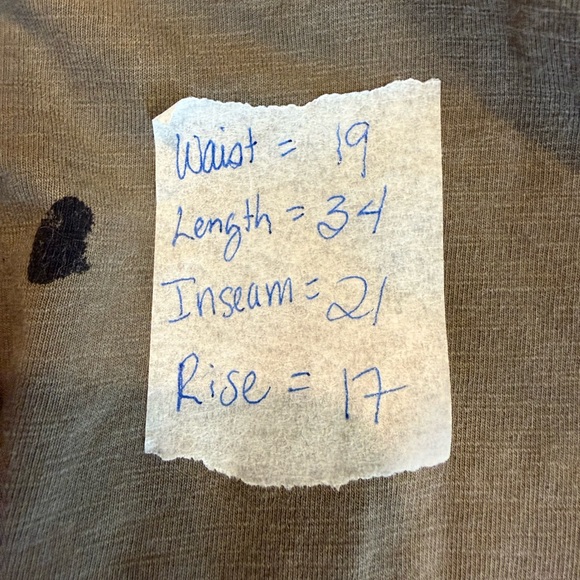 Waist = 19
Length = 34
Inseam = 21
Rise = 17